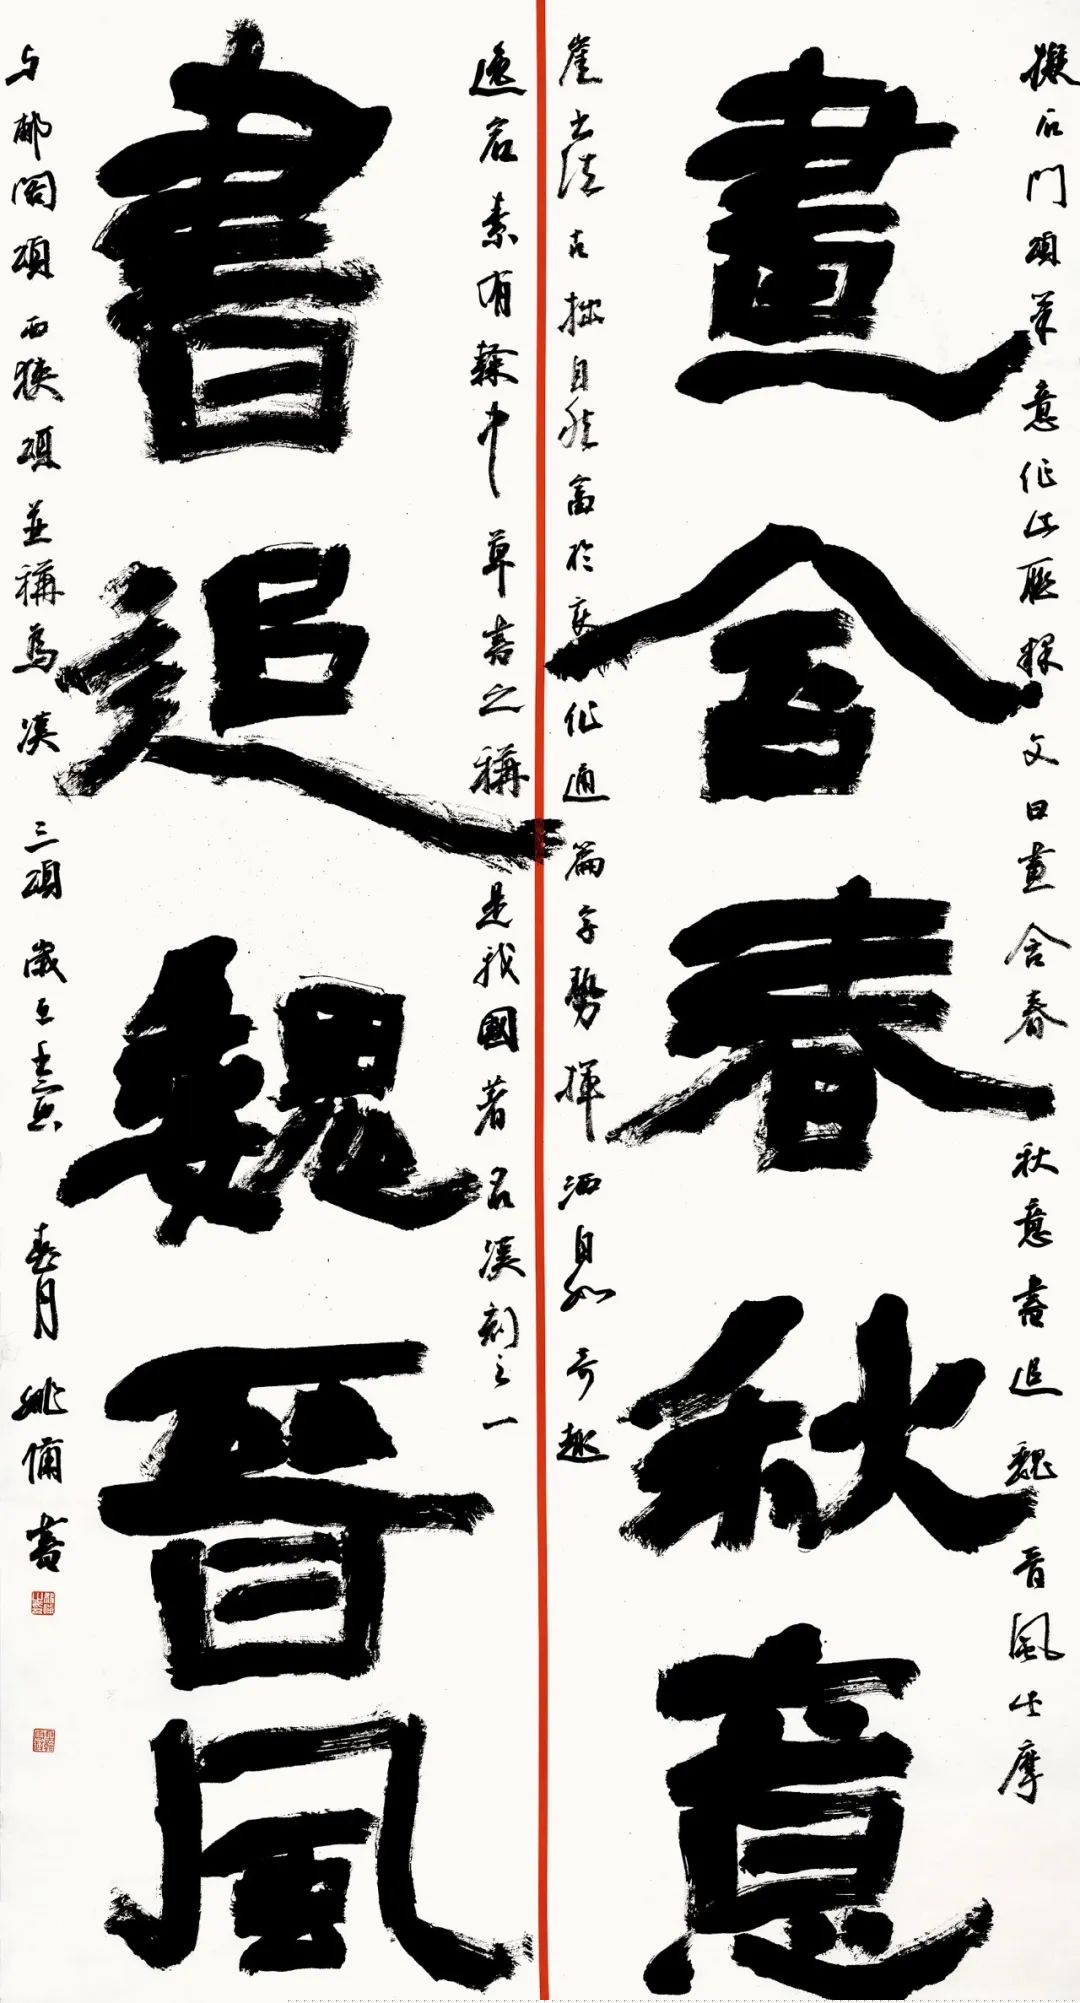 擬石門頌筆意作此聯釋文曰畫含春秋意書追魏晉風此摩
畫含春秋意
崖書法古拙自然富於變化通篇字勢揮洒自如奇趣
逸宕素有隸中草書之稱是我國著名漢刻之一
書追魏晉風
与郙閣頌西狹頌並稱為漢三頌歲在壬寅春月姚備書